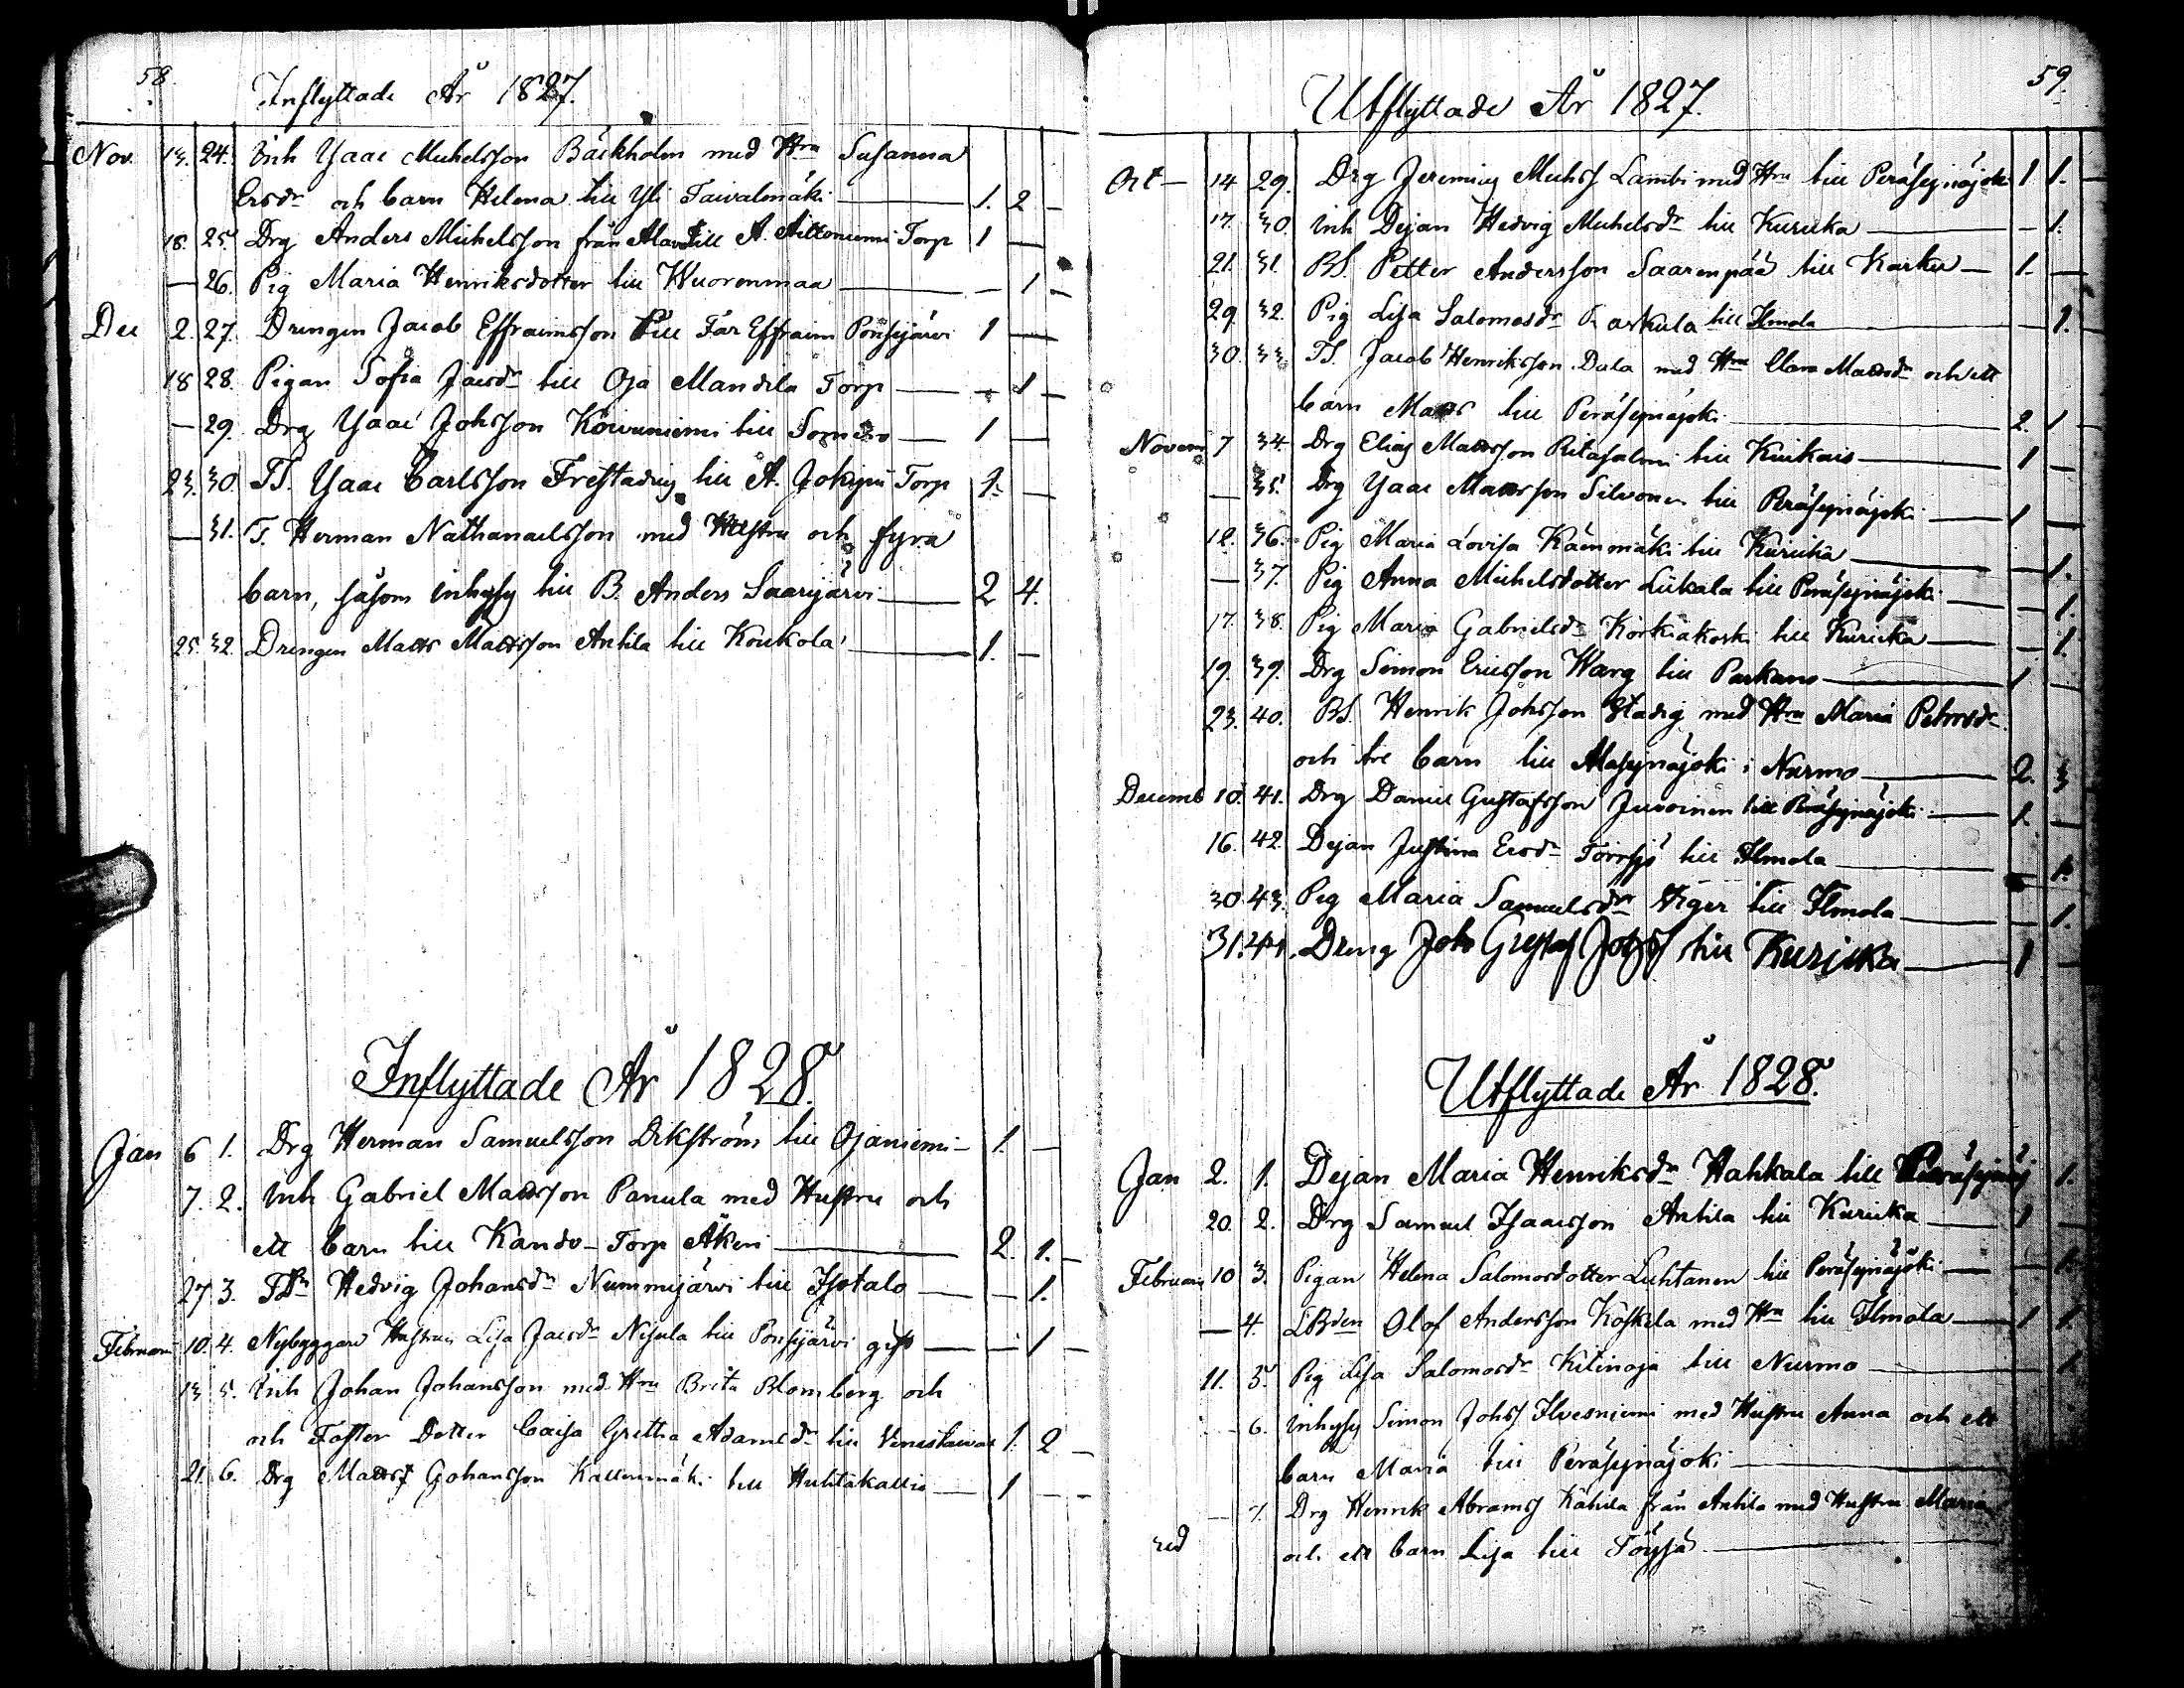 58.
Inflyttade År 1827.
Nov. 13. 24. Inh Isaac Michelsson Bäckholm med Hru Susanna
Ersdr och barn Helena till Yli Taivalmäki — 1. 2 —
18. 25. Drg Anders Michelsson från Alavo till A. Aittoniemi Torp 1 —
— 26. Pig Maria Henriksdotter till Wuorenmaa — — 1 —
Dec 2. 27. Drengen Jacob Effraimsson till Far Effraim Ponsijärvi 1 —
18 28. Pigan Sofia Jacsdr till Oja Mandila Torp — — 1 —
— 29. Drg Isaac Johsson Koivuniemi till Somero — 1 —
23. 30. TS. Isaac Carlsson Frestadius till A. Jokipii Torp 1. —
— 31. T. Herman Nathanaelsson med Hustru och fyra
barn, såsom inhyses till B. Anders Saarijärvi — 2 4.
25. 32. Drengen Matts Mattsson Antila till Koukola — 1. —
Inflyttade År 1828.
Jan 6 1. Drg Herman Samuelsson Ekström till Ojaniemi — 1. —
7. 2. Inh Gabriel Mattsson Panula med Hustru och
ett barn till Kando - Torp Äkeri — 2. 1. —
27 3. Hedvig Johansdr Nummijärvi till Isotalo — — 1.
Februari 10. 4. Nybyggare Hustrun Lisa Jacsdr Nisula till Ponsijärvi gift — — 1 —
13 5. Inh Johan Johansson med Hru Brita Blomberg och
och Foster Dotter Caisa Gretha Adamsdr till 1. 2 —
21. 6. Drg Matts Johansson Kallenmäki till Huhtakallio — 1 —
59.
Utflyttade År 1827.
Oct — 14 29. Drg Jeremias Michss Lambi med Hru till Peräseinäjoki 1 1. —
17. 30. Inh Dejan Hedvig Michelsdr till Kuricka — — 1.
21. 31. BS. Petter Andersson Saarenpää till Karku — 1. —
29. 32. Pig Lisa Salomosdr Paskula till Ilmola — — 1.
30. 33. TS. Jacob Henriksson Dala med Hru Clara Mattsdr och ett
barn Matts till Peräseinäjoki — 2. 1 —
Novem 7 34. Drg Elias Mattsson Ritasalmi till Kuikais — 1 —
— 35. Drg Isaac Mattsson Silvonen till Peräseinäjoki — 1 —
12. 36. Pig Maria Lovisa Kämmäki till Kuricka — — 1.
— 37. Pig Anna Michelsdotter Liikala till Peräseinäjoki — — 1.
17. 38. Pig Maria Gabrielsdr Korkiakoski till Kuricka — — 1.
19. 39. Drg Simon Ericsson Warg till Parkano — 1 —
23. 40. BS. Henrik Johsson Stadig med Hru Maria Petersdr
och tre barn till Alaseinäjoki i Nurmo — 2. 3
Decemb 10. 41. Drg Daniel Gustafsson Juvoinen till Peräseinäjoki — 1. —
16. 42. Dejan Justina Ersdr till Ilmola — 1.
30 43. Pig Maria Samuelsdr Tiger till Ilmola — — 1.
31. 44. Dreng Joh Gustaf Johss till Kuricka — 1 —
Utflyttade År 1828.
Jan 2. 1. Dejan Maria Henriksdr Hahkala till Peräseinäj 1.
20. 2. Drg Samuel Isaacsson Antila till Kuricka — 1 —
Februari 10 3. Pigan Helena Salomosdotter Luhtanen till Peräseinäjoki — — 1.
— 4. LBden Olof Andersson Koskela med Hru till Ilmola — 1 1.
11. 5. Pig Lisa Salomosdr Kitinoja till Nurmo — 1
— 6. Inhyses Simon Johss Ilvesniemi med Hustru Anna och ett
barn Maria till Peräseinäjoki —
— 7. Drg Henrik Abramss Kahila från Antila med Hustru Maria
och ett barn Lisa till Töysä —